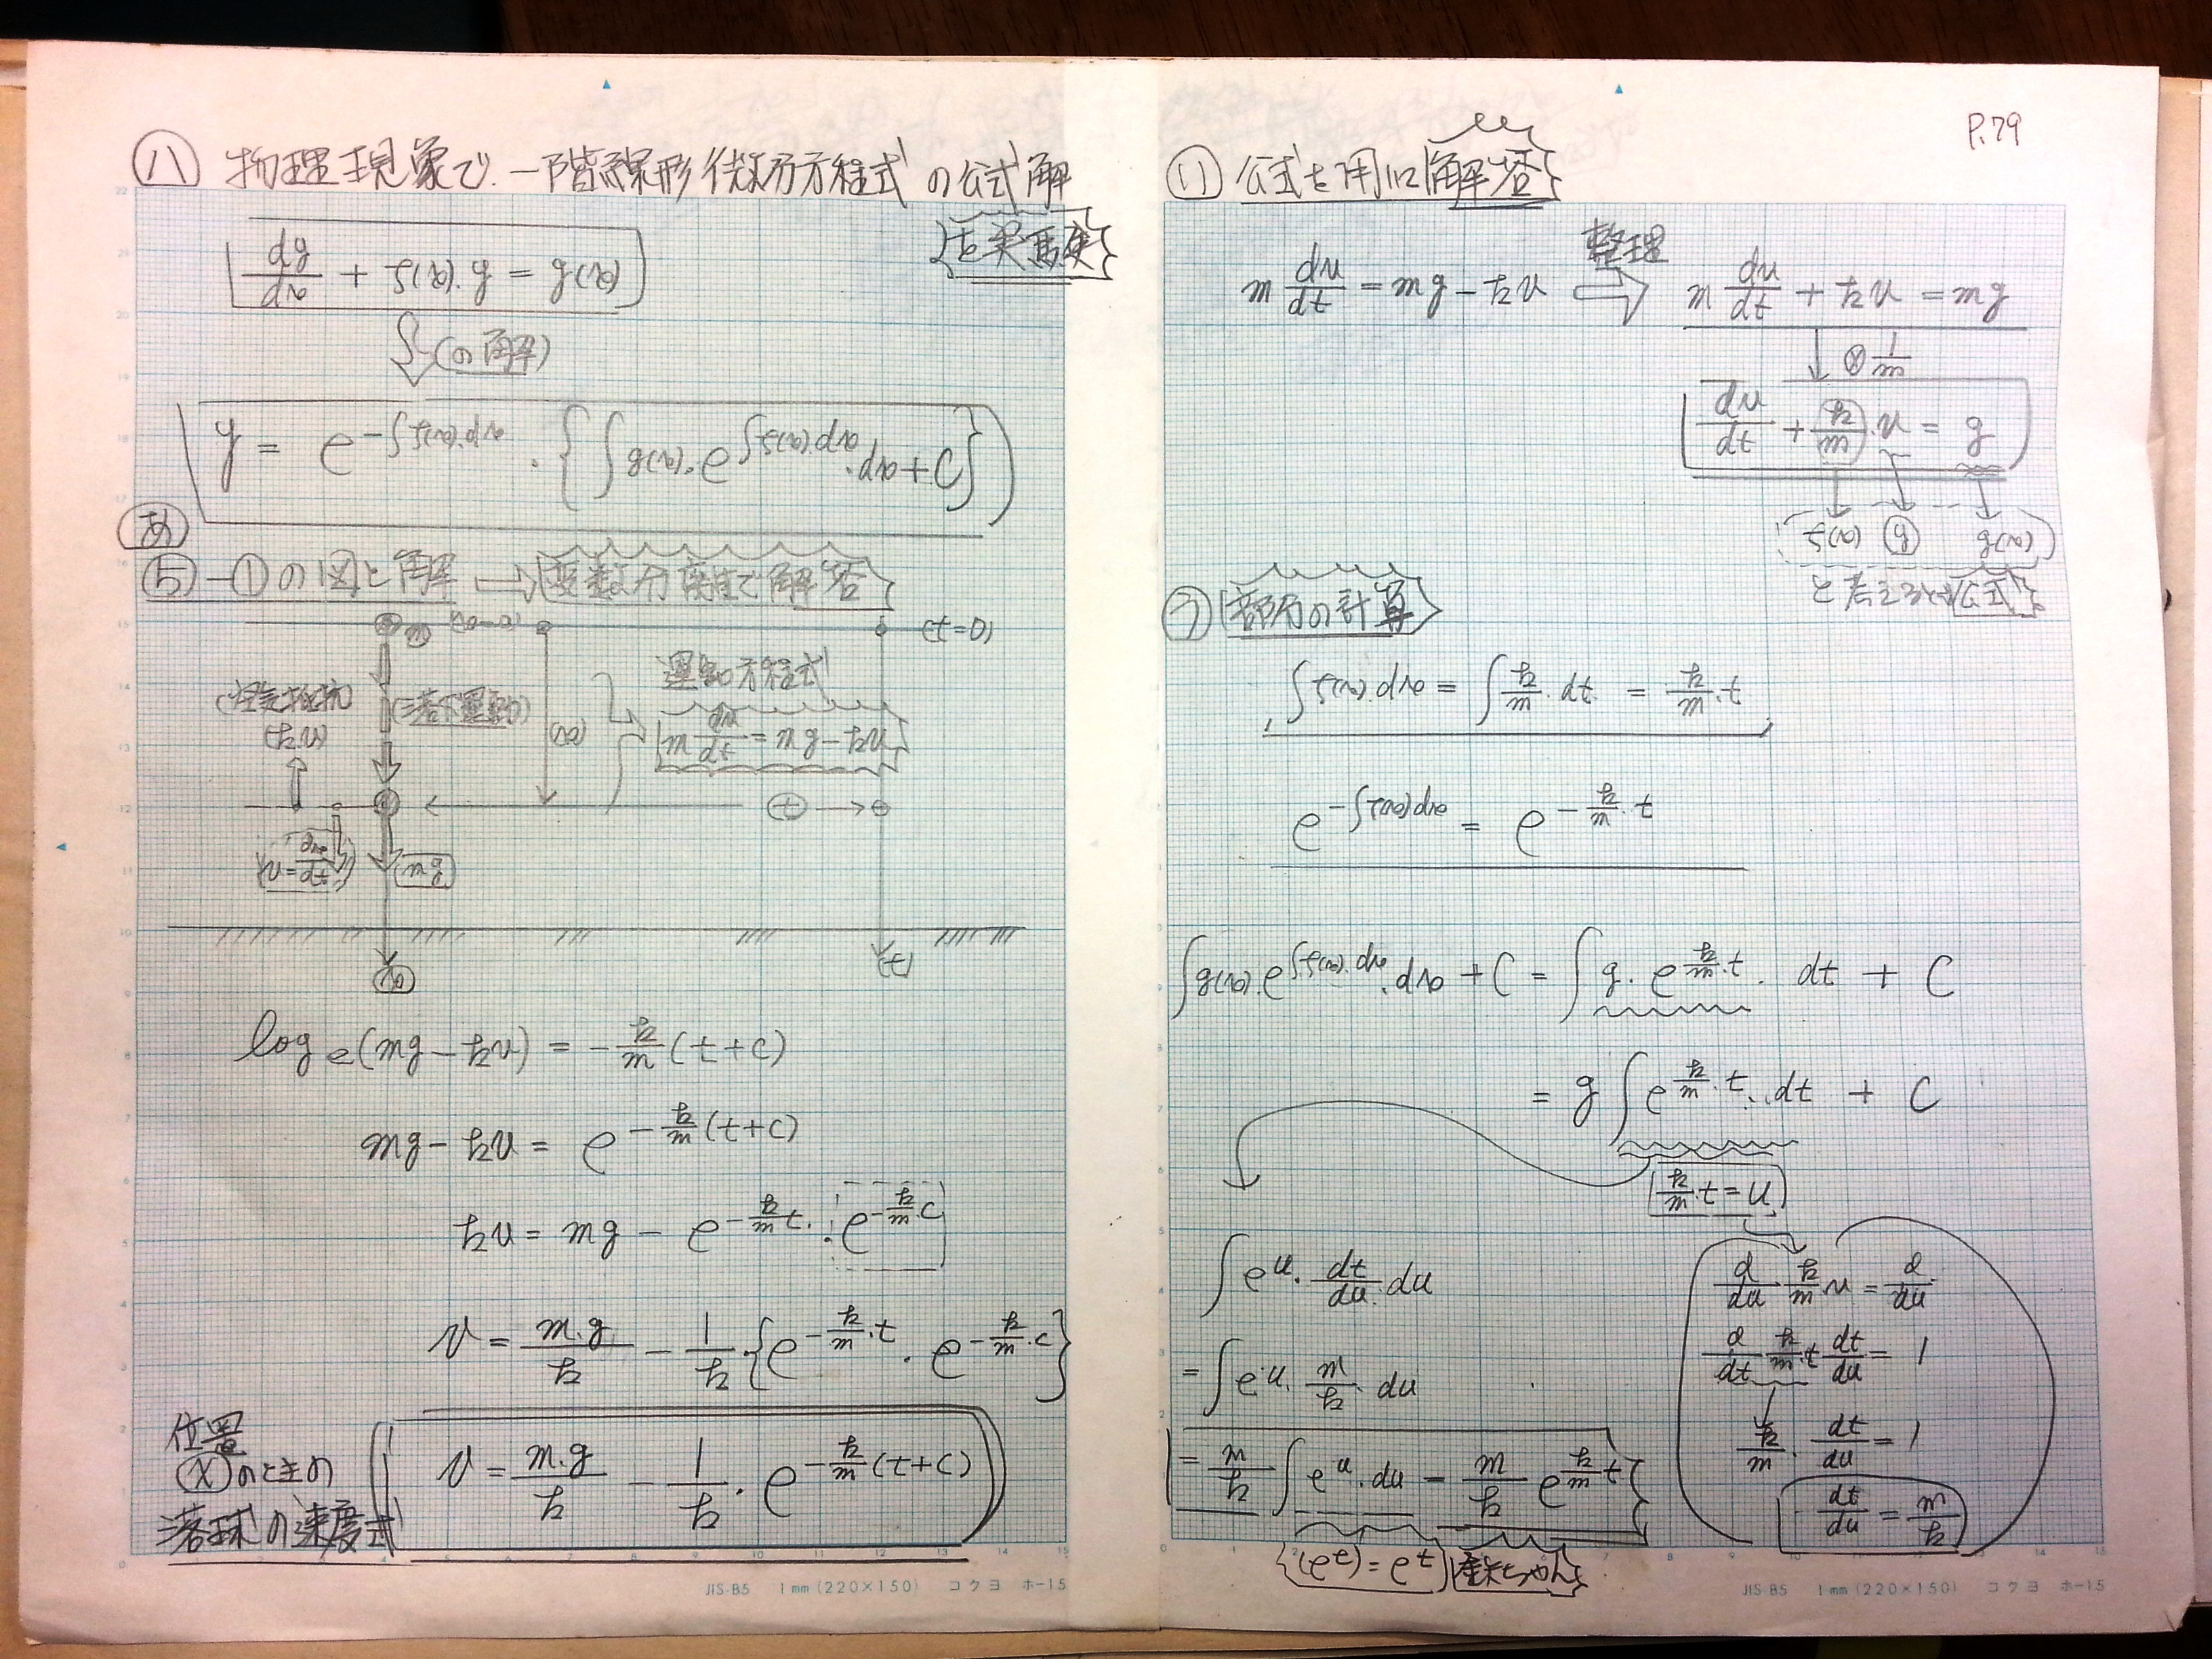 八 物理現象で、一階線形微分方程式の公式解
を実感
dy/dx + f(x)・y = g(x)
(の解)
y = e^{-∫f(x)・dx}・{∫g(x)・e^{∫f(x)・dx}・dx+C}
あ
5-①の図と解 → 変数分離性で解答
(x=0)
(t=0)
(空気抵抗)
(kv)
(落下運動)
(x)
運動方程式
m dv/dt = mg-kv
t
v=dx/dt
mg
(x)
(t)
log e(mg-kv) = -k/m(t+c)
mg-kv = e^{-k/m(t+c)}
kv = mg - e^{-k/m t}・e^{-k/m c}
v = m・g/k - 1/k・{e^{-k/m・t}・e^{-k/m・c}}
位置
(x)のときの
落球の速度式
v = m・g/k - 1/k・e^{-k/m(t+c)}
JIS-B5 1mm(220×150) コクヨ ホ-15
P.79
い 公式を用い解答
m dv/dt = mg-kv 整理 ⇒ m dv/dt + kv = mg
↓ ⊗ 1/m
dv/dt + k/m・v = g
f(x) y g(x)
と考える 公式
う 部分の計算
∫f(x)・dx = ∫k/m・dt = k/m・t
e^{-∫f(x)dx} = e^{-k/m・t}
∫g(x)・e^{∫f(x)・dx}・dx + C = ∫g・e^{k/m・t}・dt + C
= g∫e^{k/m・t}・dt + C
k/m・t=u
∫e^u・dt/du・du
= ∫e^u・m/k・du
= m/k ∫e^u・du = m/k e^{k/m t}
(e^t)=e^t
d/du k/m・u = d/du
d/dt k/m・t dt/du = 1
k/m・dt/du = 1
dt/du = m/k
JIS-B5 1mm(220×150) コクヨ ホ-15